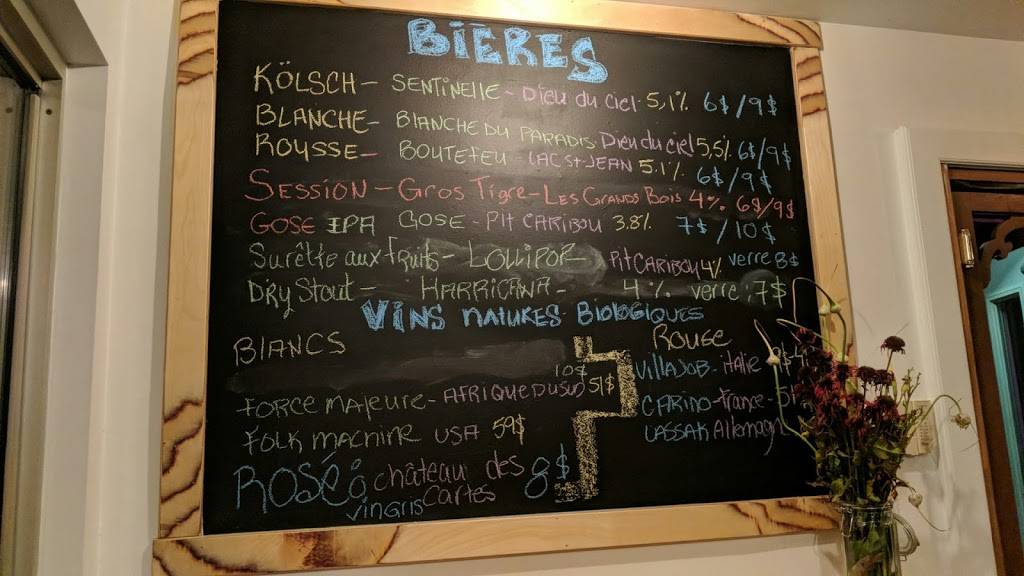 BIÈRES
KÖLSCH - SENTINELLE - DIEU DU CIEL 5,1% 6$/9$
BLANCHE - BLANCHE DU PARADIS DIEU DU CIEL 5,5% 6$/9$
ROUSSE - BOUTEFEU LAC ST-JEAN 5.1% 6$/9$
SESSION - GROS TIGRE - LES GRANDS BOIS 4% 6$/9$
GOSE IPA GOSE - PIT CARIBOU 3.8% 7$/10$
Surêtte aux fruits - LOLLIPOP PIT CARIBOU 4% verre 8$
DRY Stout - HARRICANA - 4% verre: 7$
VINS NATURES BIOLOGIQUES
BLANCS
10$
FORCE MAJEURE - AFRIQUE DU SUD 51$
FOLK MACHINE USA 59$
ROSÉ château des 8$
vin gris Cartes
ROUGE
VILLA JOB - italie
CARINO - france -
LASSAK Allemagn